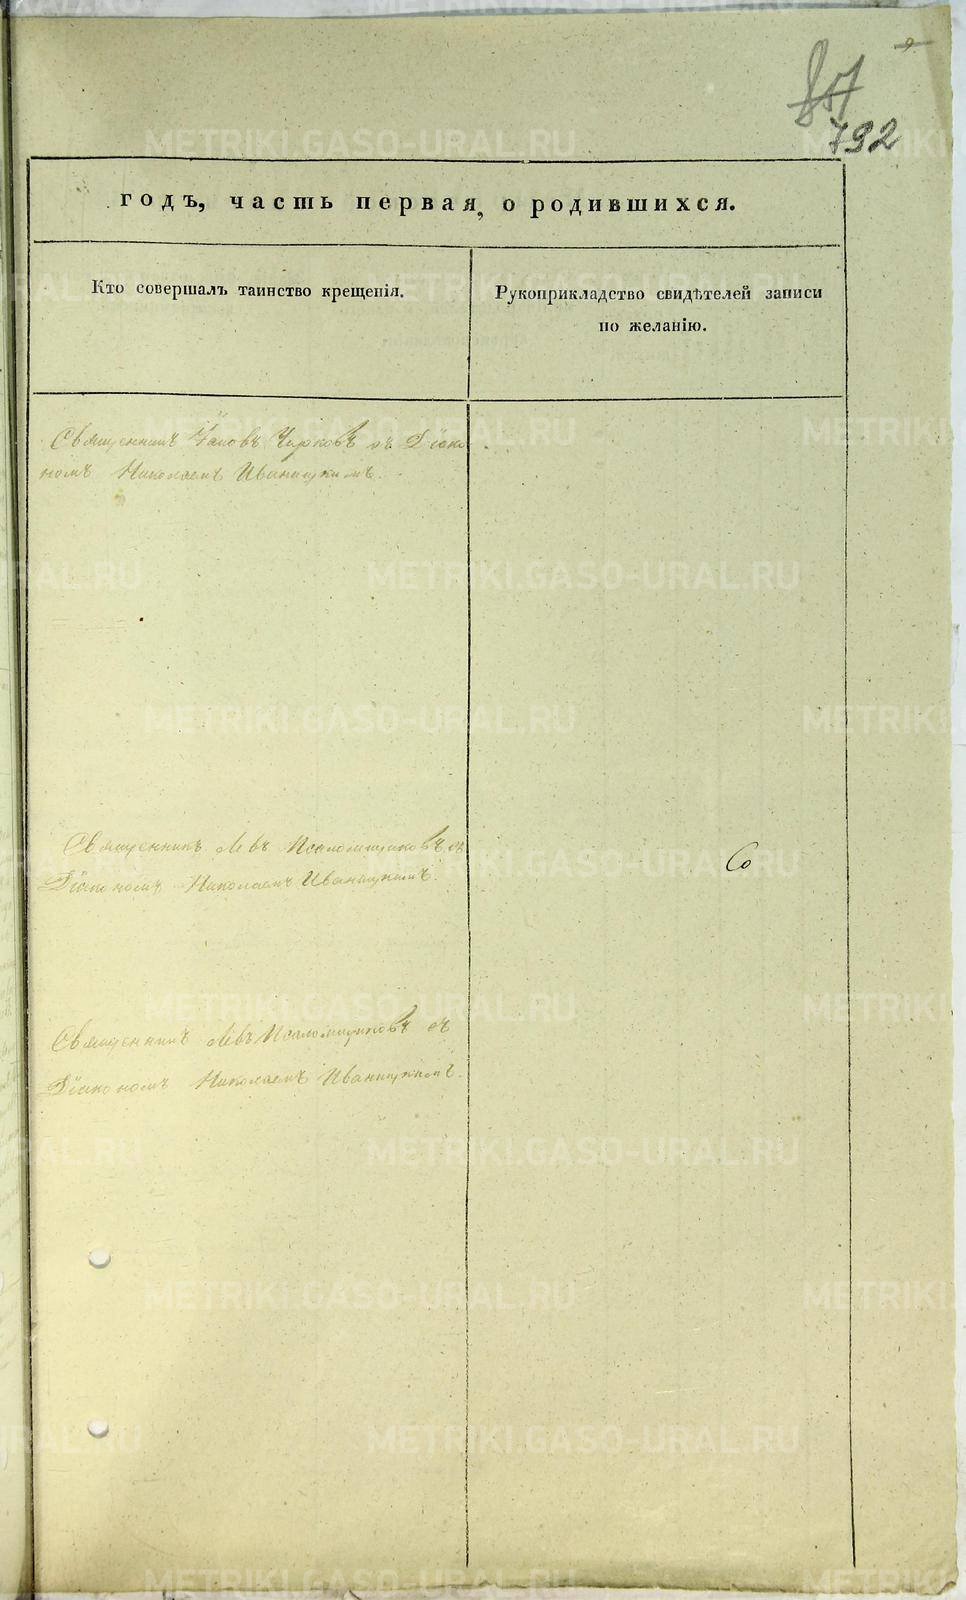 792
годъ, часть первая, о родившихся.
Кто совершалъ таинство крещенія.
Рукоприкладство свидѣтелей записи
по желанію.
Священникъ Іаковъ Чирковъ съ Діако
номъ Николаемъ Иваницкимъ.
Священникъ Левъ Псаломщиковъ съ
Діакономъ Николаемъ Иваницкимъ.
Со
Священникъ Левъ Псаломщиковъ съ
Діакономъ Николаемъ Иваницкимъ.
METRIKI.GASO-URAL.RU